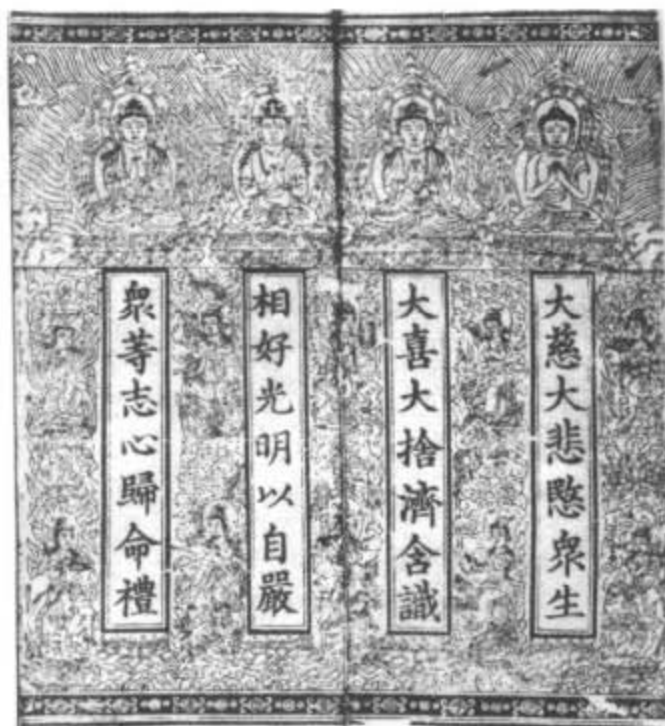 大慈大悲愍衆生
大喜大捨濟含識
相好光明以自嚴
衆等志心歸命禮